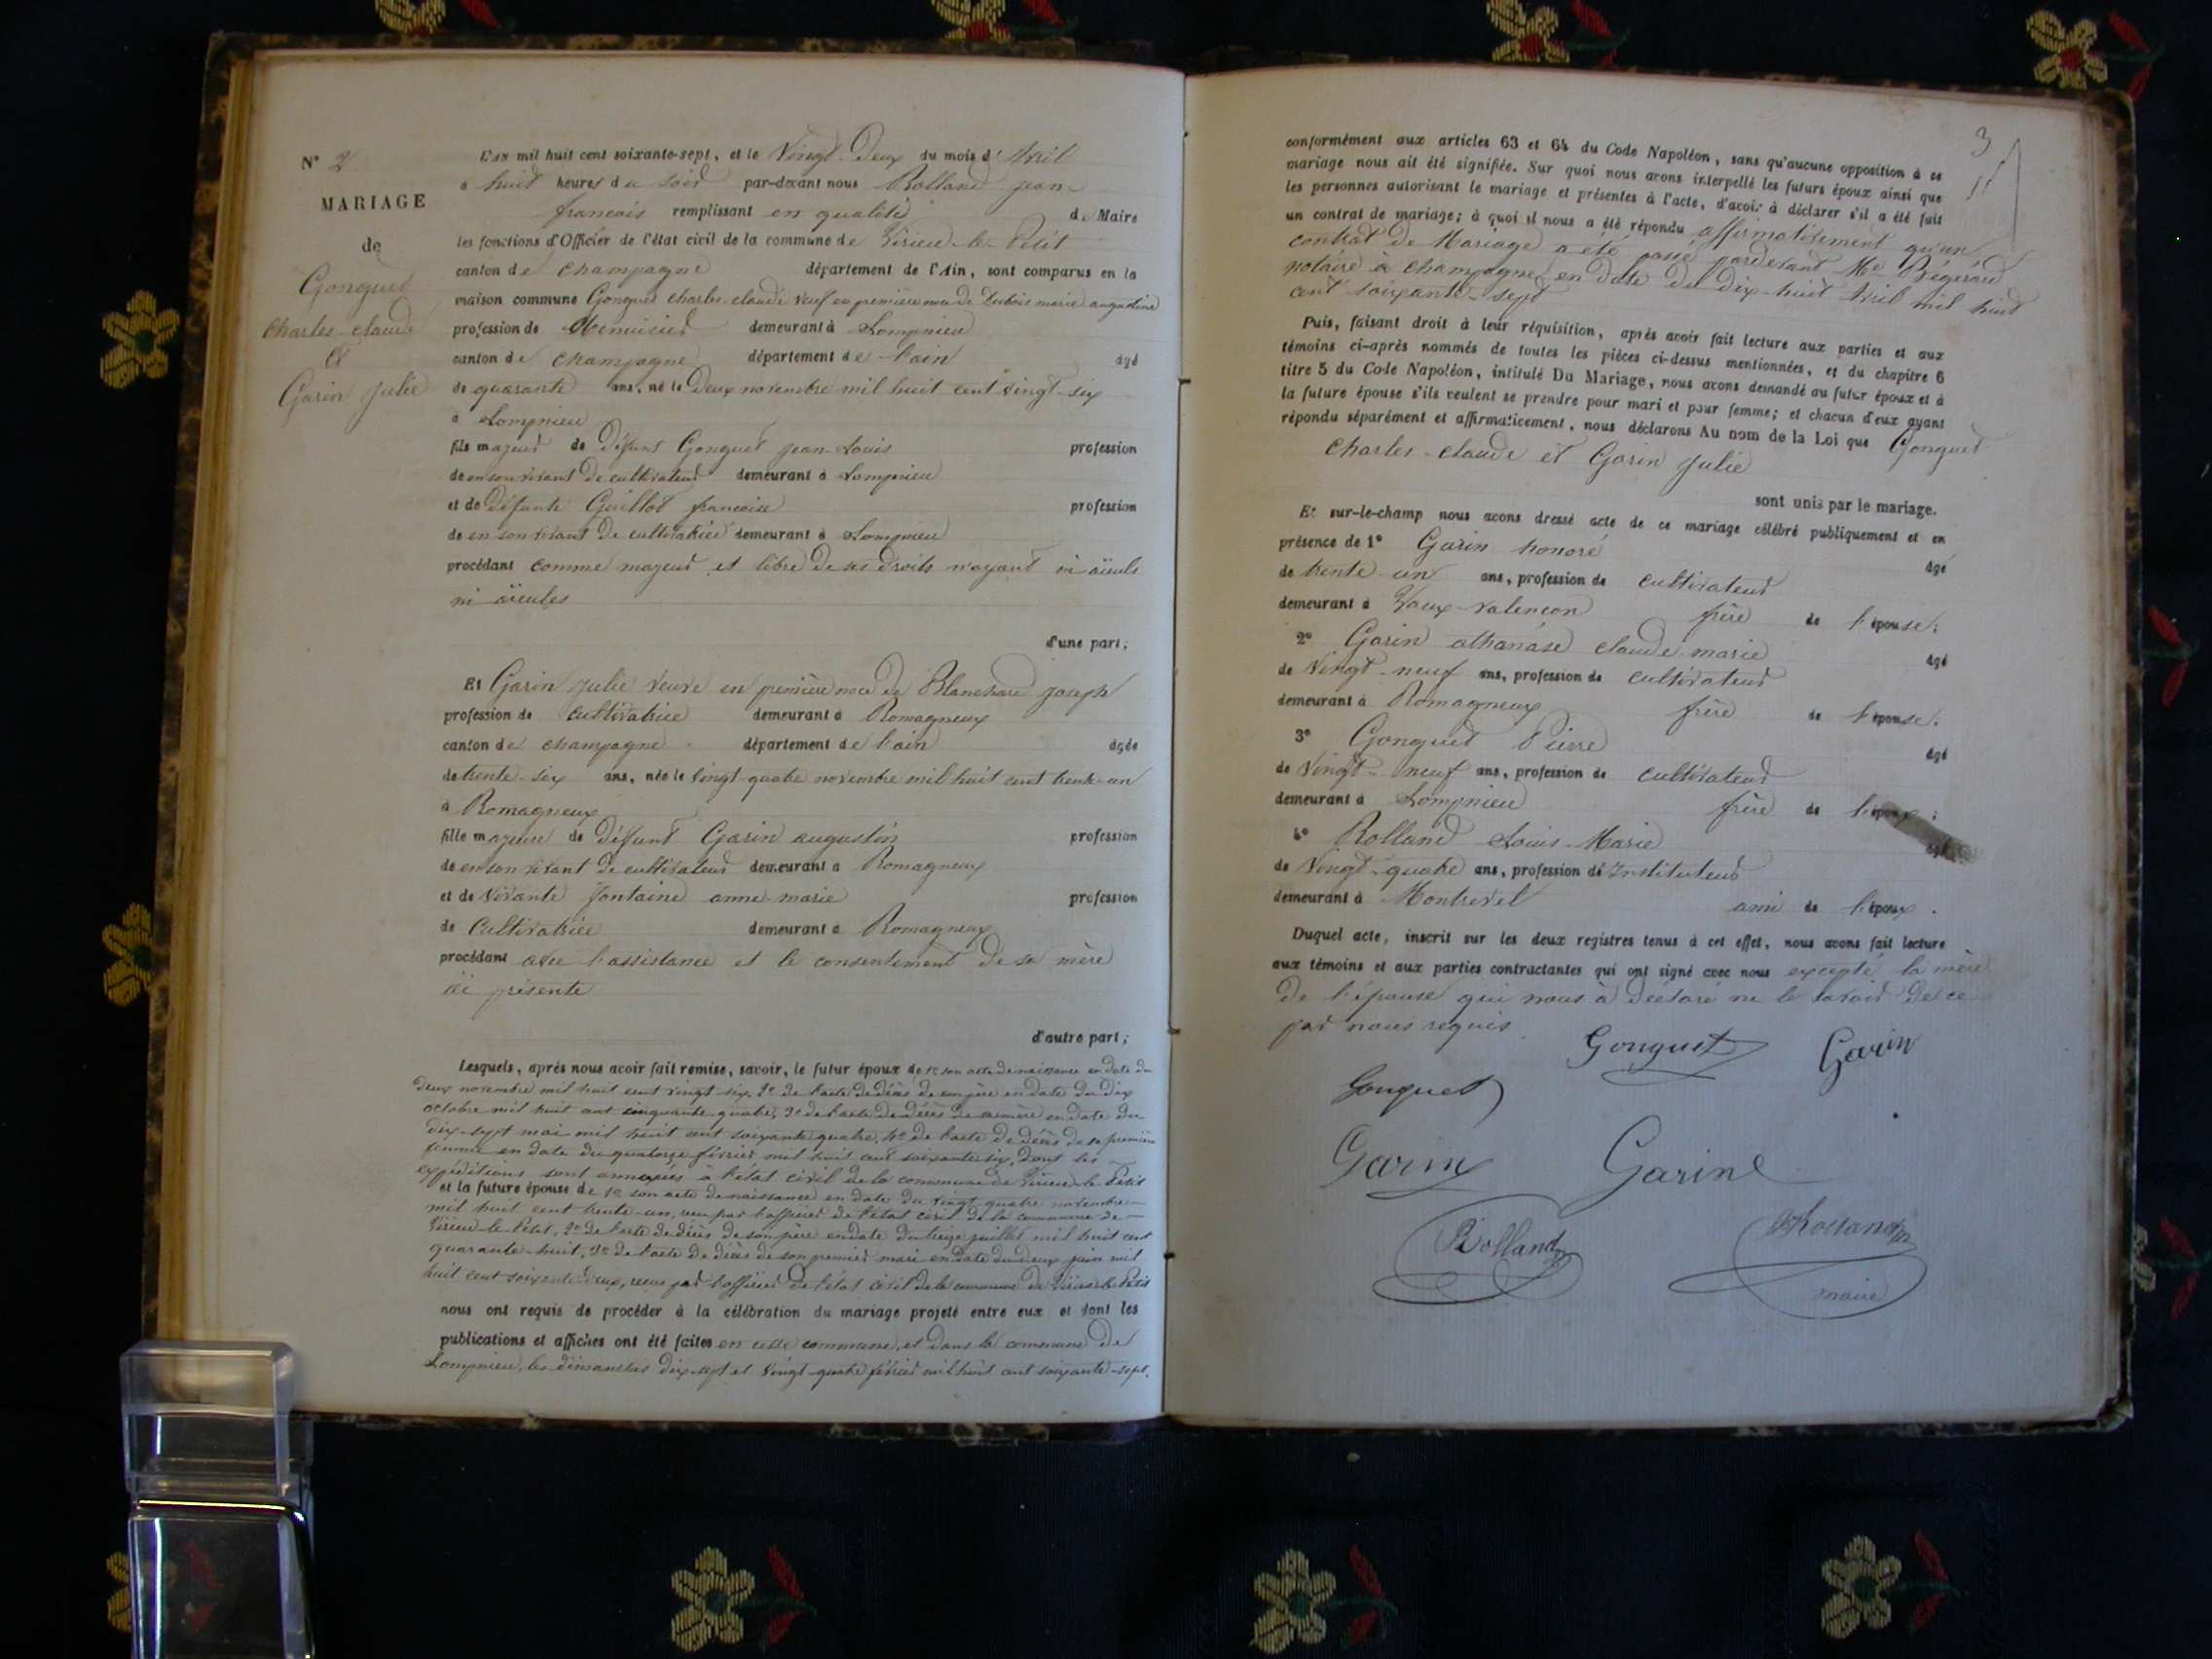 N° 2
MARIAGE
de
Gonguet
Charles-claude
et
Garin Julie
L'AN mil huit cent soixante-sept, et le Vingt-Deux du mois d'Avril
à huit heures du soir par-devant nous Rolland jean-
francois remplissant en qualité de Maire
les fonctions d'Officier de l'état civil de la commune de Virieu-le-Petit
canton de champagne département de l'Ain, sont comparus en la
maison commune Gonguet charles-claude veuf en première noce de Dubois marie augustine
profession de Menuisier demeurant à Lompnieu
canton de champagne département de l'ain âgé
de quarante ans, né le Deux novembre mil huit cent vingt-six
à Lompnieu
fils majeur de défunt Gonguet jean-Louis profession
de en son vivant de cultivateur demeurant à Lompnieu
et de défunte Guillot francoise profession
de en son vivant de cultivatrice demeurant à Lompnieu
procédant comme majeur et libre de ses droits n'ayant ni aïeuls
ni aïeules
d'une part;
Et Garin Julie veuve en première noce de Blanchard joseph
profession de cultivatrice demeurant à Romagneux
canton de champagne département de l'ain âgée
de trente-six ans, née le vingt-quatre novembre mil huit cent trente-un
à Romagneux
fille majeure de défunt Garin augustin profession
de en son vivant de cultivateur demeurant à Romagneux
et de vivante fontaine anne-marie profession
de Cultivatrice demeurant à Romagneux
procédant avec l'assistance et le consentement de sa mère
ici présente
d'autre part;
Lesquels, après nous avoir fait remise, savoir, le futur époux de 1° son acte de naissance en date du
deux novembre mil huit cent vingt-six, 2° de l'acte de décès de son père en date du dix
octobre mil huit cent cinquante-quatre, 3° de l'acte de décès de sa mère en date du
dix-sept mai mil huit cent soixante quatre, 4° de l'acte de décès de sa première
femme en date du quatorze février mil huit cent soixante six, dont les
expéditions sont annexées à l'état civil de la commune de Virieu-le-Petit
et la future épouse de 1° son acte de naissance en date du vingt-quatre novembre
mil huit cent trente-un, reçu par l'officier de l'état civil de la commune de
Virieu-le-Petit, 2° de l'acte de décès de son père en date du treize juillet mil huit cent
quarante-huit, 3° de l'acte de décès de son premier mari en date du deux juin mil
huit cent soixante-deux, reçus par l'officier de l'état civil de la commune de Virieu-le-Petit
nous ont requis de procéder à la célébration du mariage projeté entre eux et dont les
publications et affiches ont été faites en cette commune, et dans la commune de
Lompnieu, les dimanches dix-sept et vingt-quatre février mil huit cent soixante-sept.
3
conformément aux articles 63 et 64 du Code Napoléon, sans qu'aucune opposition à ce
mariage nous ait été signifiée. Sur quoi nous avons interpellé les futurs époux ainsi que
les personnes autorisant le mariage et présentes à l'acte, d'avoir à déclarer s'il a été fait
un contrat de mariage; à quoi il nous a été répondu affirmativement qu'un
contrat de Mariage a été passé pardevant Me
notaire à champagne, en date du dix-huit Avril mil huit
cent soixante-sept
Puis, faisant droit à leur réquisition, après avoir fait lecture aux parties et aux
témoins ci-après nommés de toutes les pièces ci-dessus mentionnées, et du chapitre 6
titre 5 du Code Napoléon, intitulé Du Mariage, nous avons demandé au futur époux et à
la future épouse s'ils veulent se prendre pour mari et pour femme; et chacun d'eux ayant
répondu séparément et affirmativement, nous déclarons Au nom de la Loi que Gonguet
Charles-claude et Garin Julie
sont unis par le mariage.
Et sur-le-champ nous avons dressé acte de ce mariage célébré publiquement et en
présence de 1° Garin honoré âgé
de trente-un ans, profession de cultivateur
demeurant à frère de l'épouse;
2° Garin athanase claude-marie âgé
de vingt-neuf ans, profession de cultivateur
demeurant à Romagneux frère de l'épouse;
3° Gonguet Pierre âgé
de vingt-neuf ans, profession de cultivateur
demeurant à Lompnieu frère de l'époux;
4° Rolland Louis-Marie âgé
de Vingt-quatre ans, profession d'Instituteur
demeurant à Montrevel ami de l'époux.
Duquel acte, inscrit sur les deux registres tenus à cet effet, nous avons fait lecture
aux témoins et aux parties contractantes qui ont signé avec nous excepté la mère
de l'épouse qui nous a déclaré ne le savoir de ce
par nous requis
Gonguet Garin
Gonguet
Garin Garine
Rolland Rolland
maire